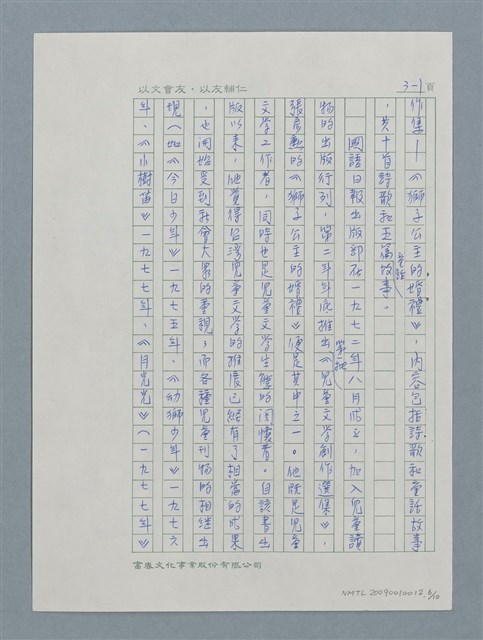 以文會友・以友輔仁
3-1頁
作集—《獅子公主的婚禮》，內容包括詩歌和童話故事
，共十首詩歌和五篇童話故事。
國語日報出版部在一九七二年八月成立，加入兒童讀
物的出版行列，第二年年底推出《兒童文學創作選集》第一批，
張彥勳的《獅子公主的婚禮》便是其中之一。他既是兒童
文學工作者，同時也是兒童文學生態的關懷者。自該書出
版以來，他覺得台灣兒童文學的推展已經有了相當的成果
，也開始受到社會大眾的重視，而各種兒童刊物的相繼出
現（如《今日少年》一九七五年、《幼獅少年》一九七六
年、《小樹苗》一九七七年、《月光光》（一九七七年》
富春文化事業股份有限公司
NMTL 20090010012 6/10